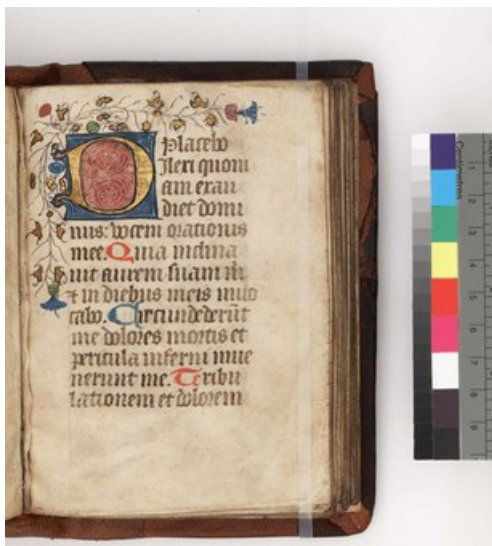 Placebo
D ilexi quoni
am exau
diet domi
nus: vocem orationis
mee. Quia inclina
uit aurem suam m̄
⁊ in diebus meis inuo
cabo. Circundederūt
me dolores mortis et
pericula inferni inue
nerunt me. Tribu
lationem et dolorem
Centimetres
1
2
3
4
5
6
7
8
9